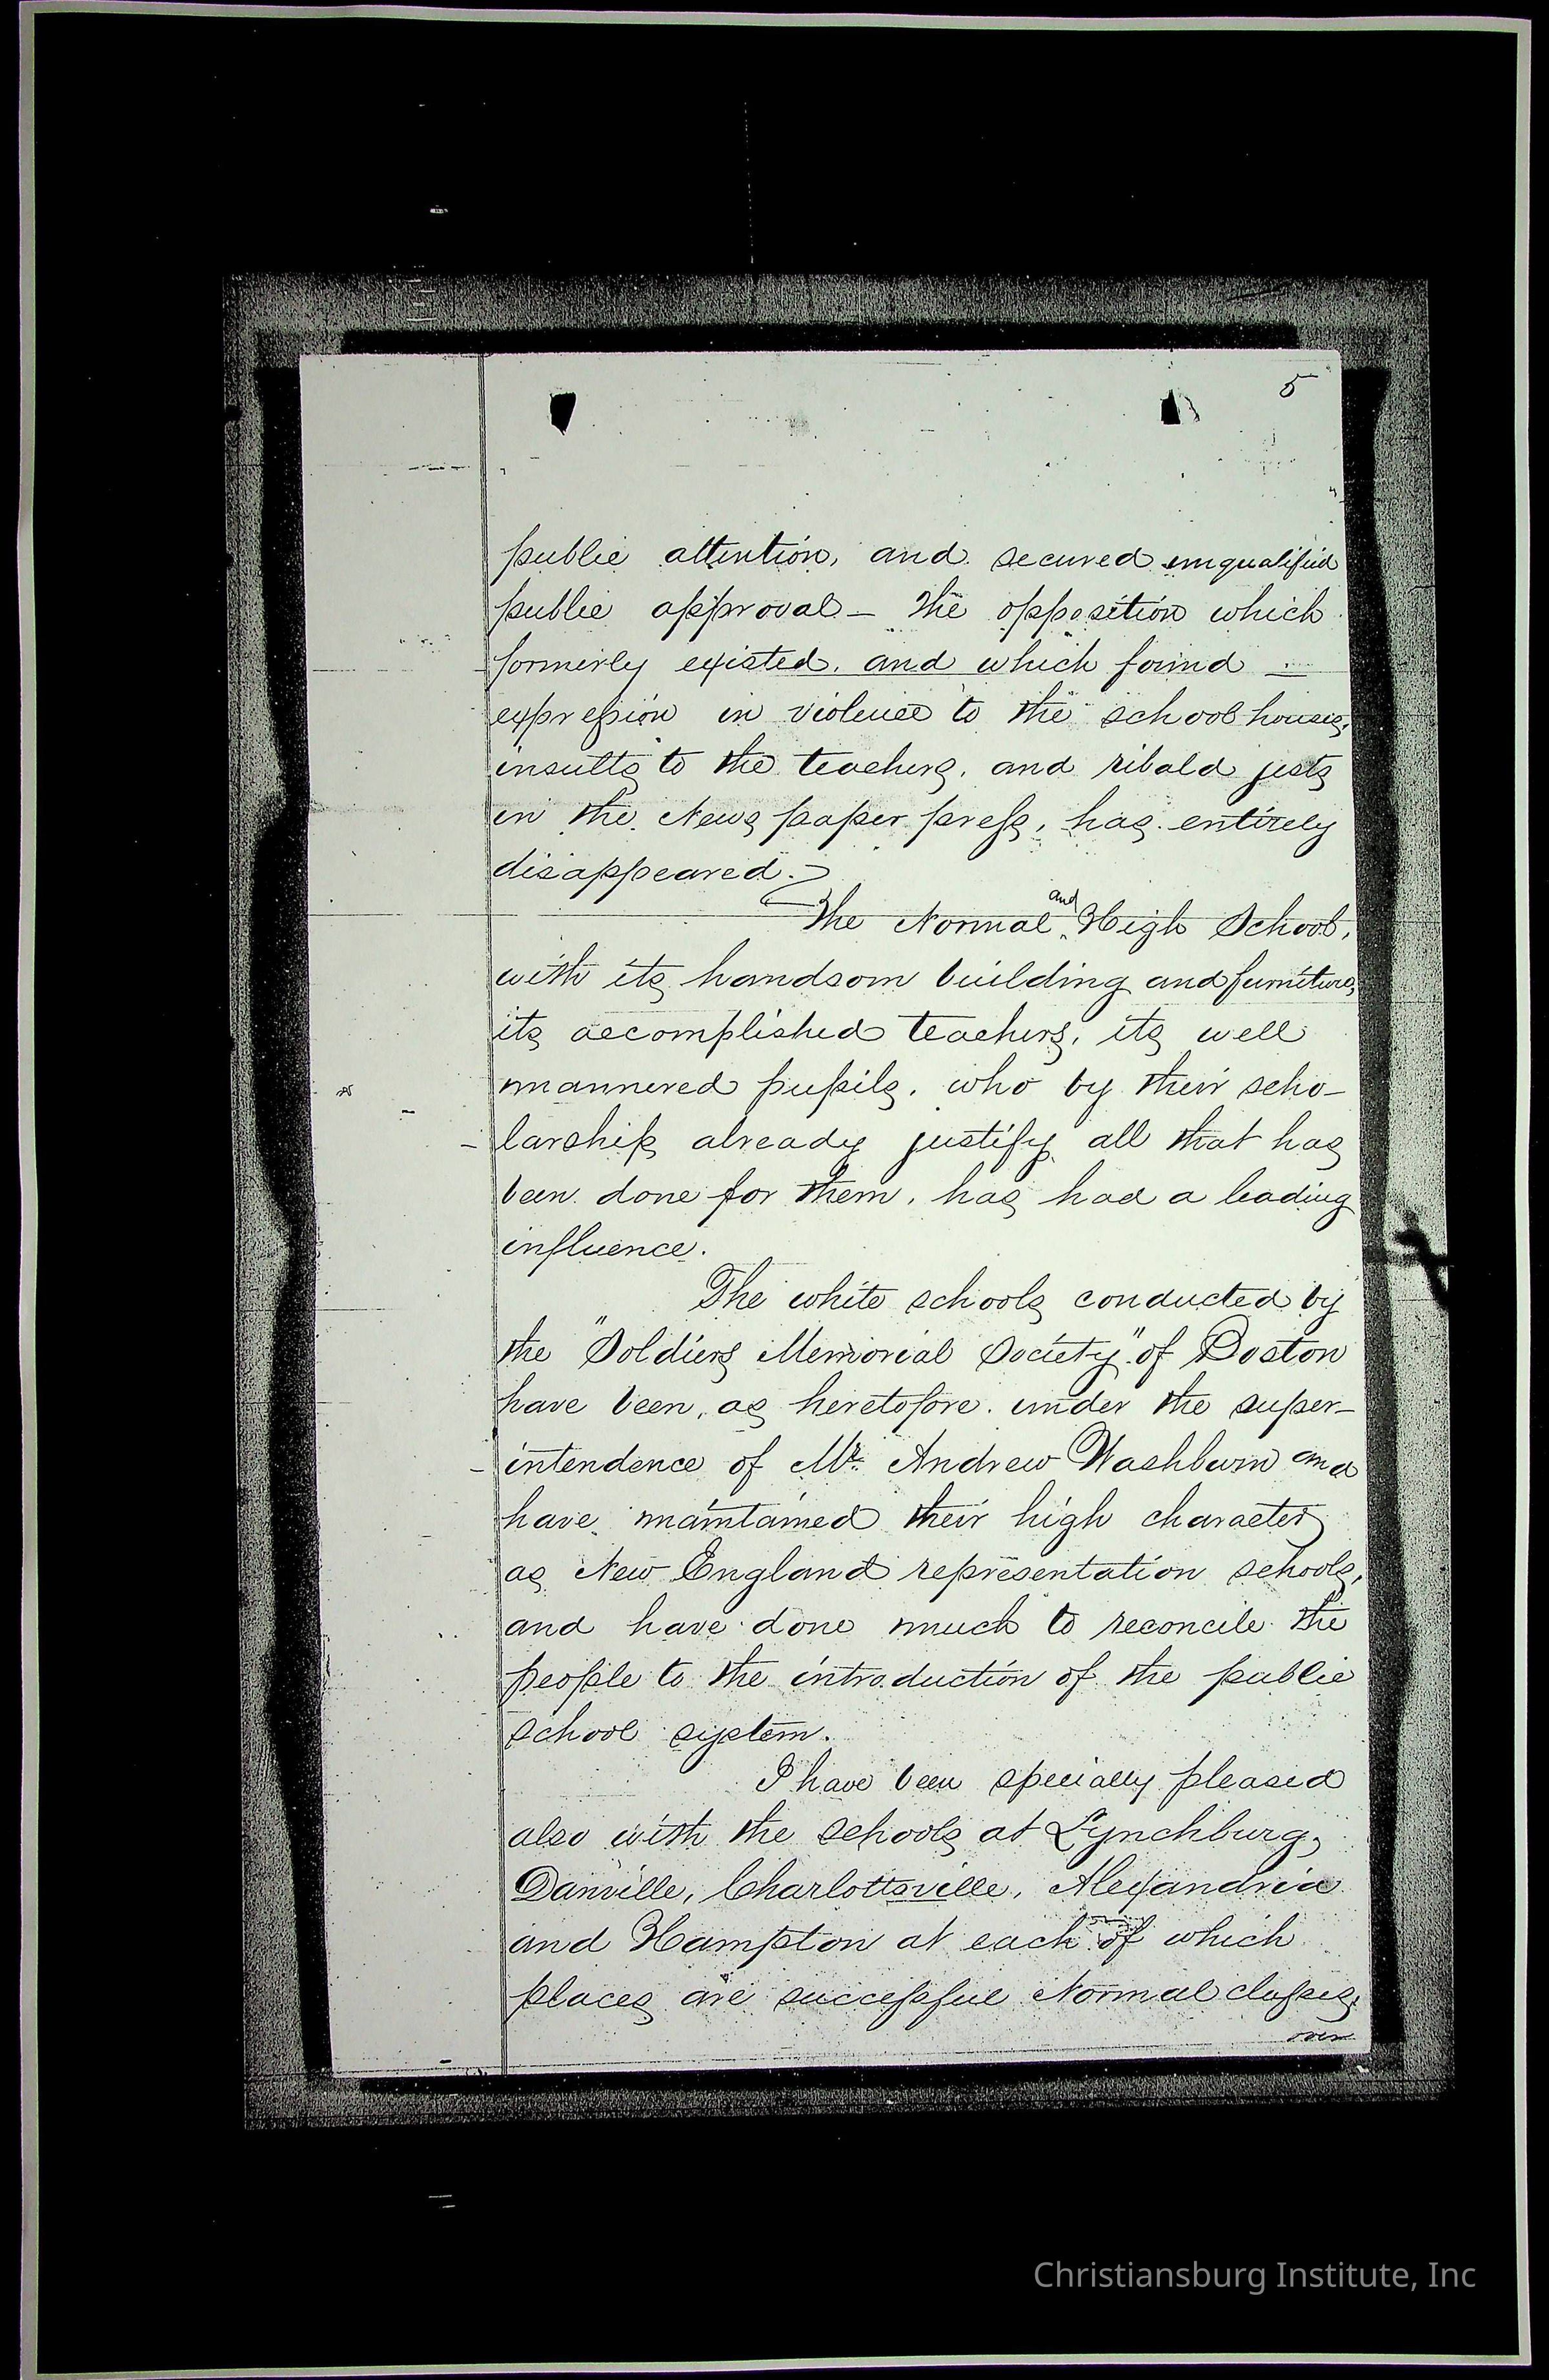 5
public attention, and secured unqualified
public approval — The opposition which
formerly existed, and which found —
expression in violence to the school houses,
insults to the teachers, and ribald jests
in the News paper press, has entirely
disappeared.
The Normal and High School,
with its handsom building and furniture,
its accomplished teachers, its well
mannered pupils, who by their scho-
larship already justify all that has
been done for them, has had a leading
influence.
The white schools conducted by
the "Soldiers Memorial Society" of Boston
have been, as heretofore, under the super-
intendence of Mr. Andrew Washburn and
have maintained their high character
as New England representation schools,
and have done much to reconcile the
people to the introduction of the public
school system.
I have been specially pleased
also with the schools at Lynchburg,
Danville, Charlottsville, Alexandria
and Hampton at each of which
places are successful Normal classes,
over
Christiansburg Institute, Inc